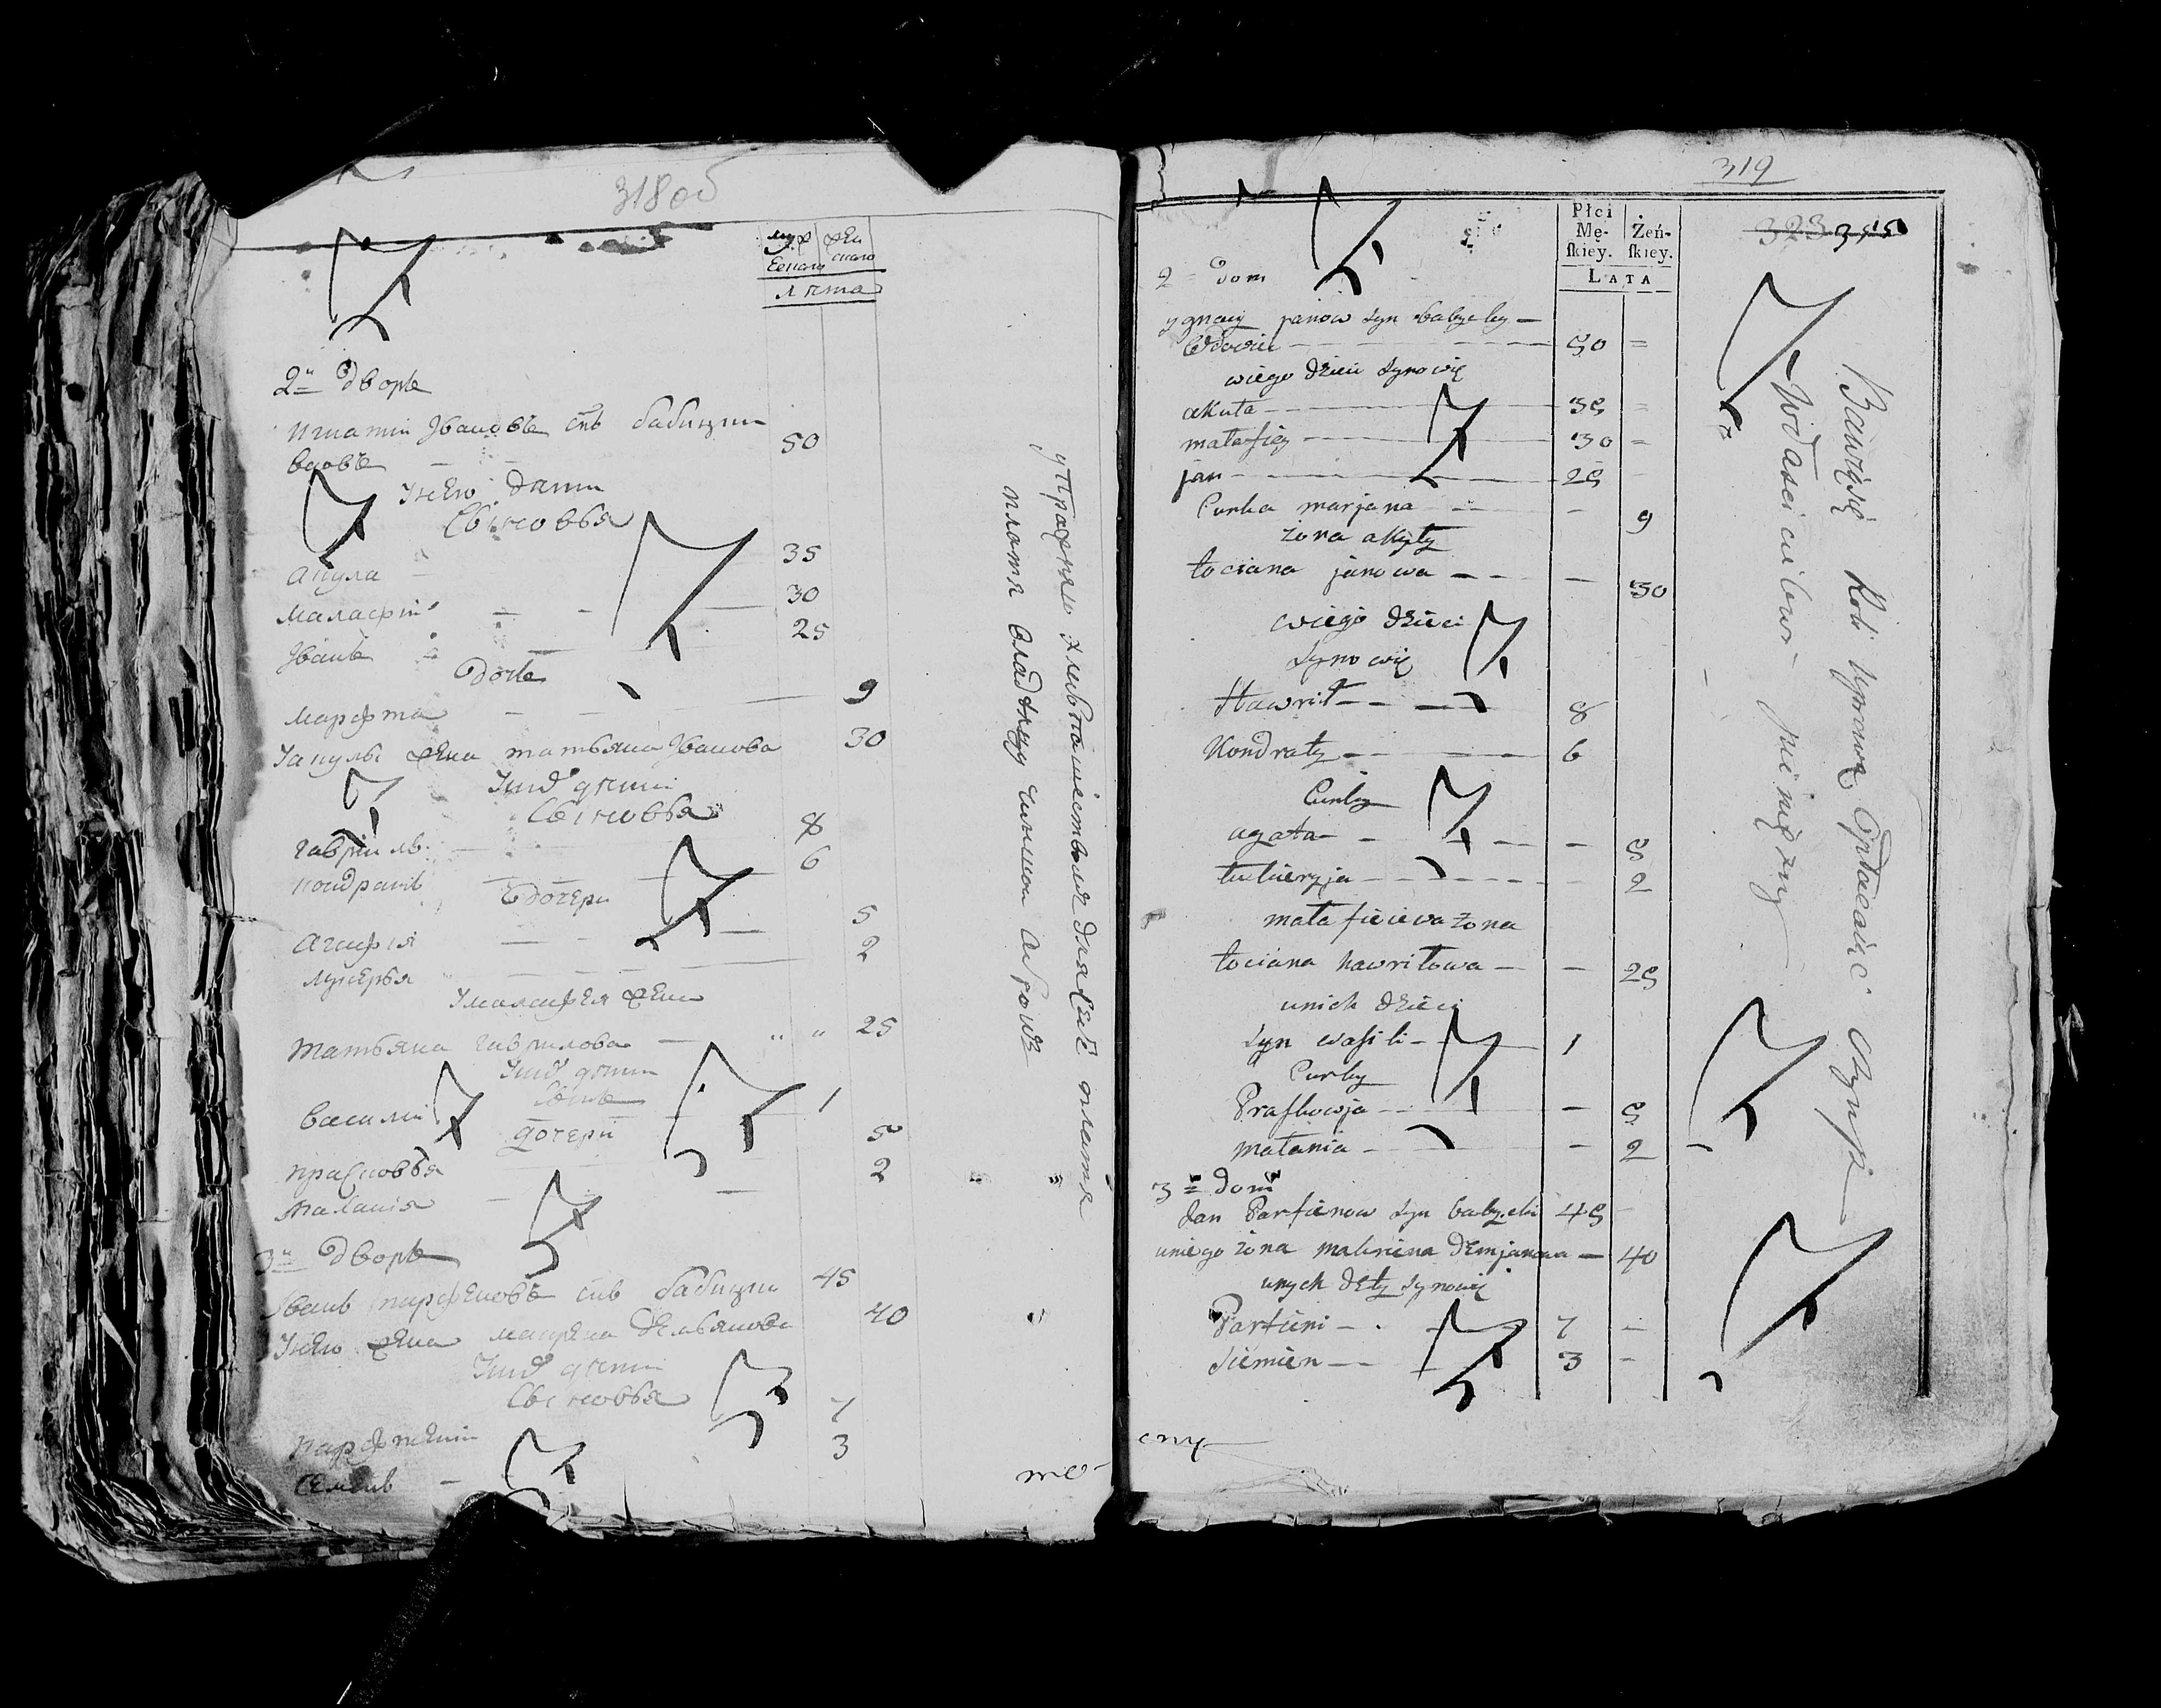 318 об
мужескаго женскаго
лѣта
2й дворъ
Игнатій Ивановъ снъ бабицки
вдовъ 50
У нево дети
Сыновья
Акула 35
Маласфій 30
Иванъ 25
дочь
Марфта 9
У акулы жена татьяна Иванова 30
У нид дети
Сыновья
Гаврилъ 8
Кондратъ 6
дочери
Агафія 5
Лукерья 2
У маласфея жена
Татьяна гаврилова 25
У нид дети
Сынъ
Василий 1
дочери
Прасковья 5
Маланія 2
3й дворъ
Иванъ парфеновъ снъ бабицки 45
У нево жена маврена демьянова 40
У нид дети
Сыновья
Парфтений 7
Семенъ 3
платя владельцу чиншом
то-
319
323 315
Płci
Mę- Żeń-
ſkiey. ſkiey.
LATA
2 = dom
ygnacy janow syn babycky —
Wdowiec 50 =
wiego dzieci synowie
akuła 35 =
małafiey 30 =
jan 25
Curka marjana - 9
żona akuły
tociana janowa - 30
wiego dzieci
synowie
Hawrił 8
Kondraty 6
Curky
agata - 5
łukieryja - 2
małafiieiewa żona
tociana hawriłowa - 25
unich dzieci
syn wasili 1
Curky
Praskowja - 5
małania - 2
3 = dom
Jan Parfienow syn babycki 45
uniego żona mawriena demjanowa 40
unych dety synowie
Parfieni 7 -
Siemien 3 -
Bawiąsię Roli uprawą Opłacaiąc czynsz
pieniężny
спу